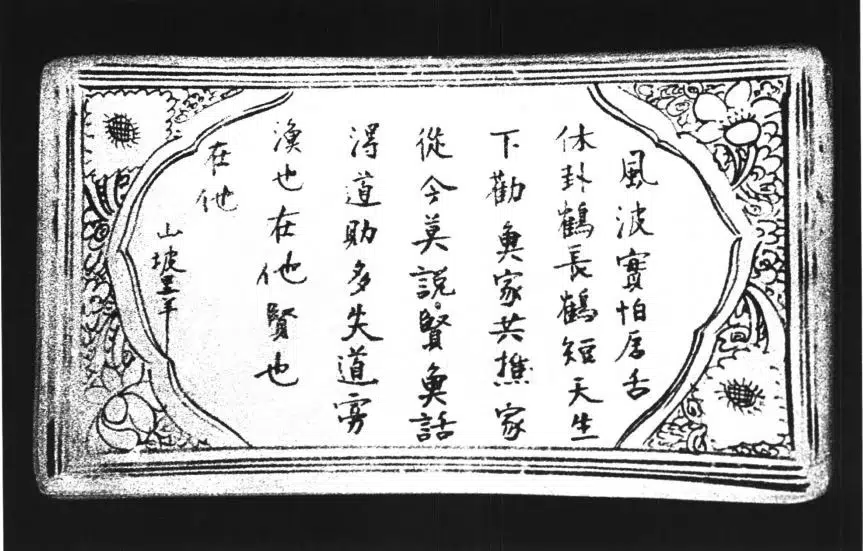 風波實怕唇舌
休卦鶴長鶴短天生
下勸魚家共樵家
從今莫說賢魚話
淂道助多失道寡
漁也在他賢也
在他
山坡里羊